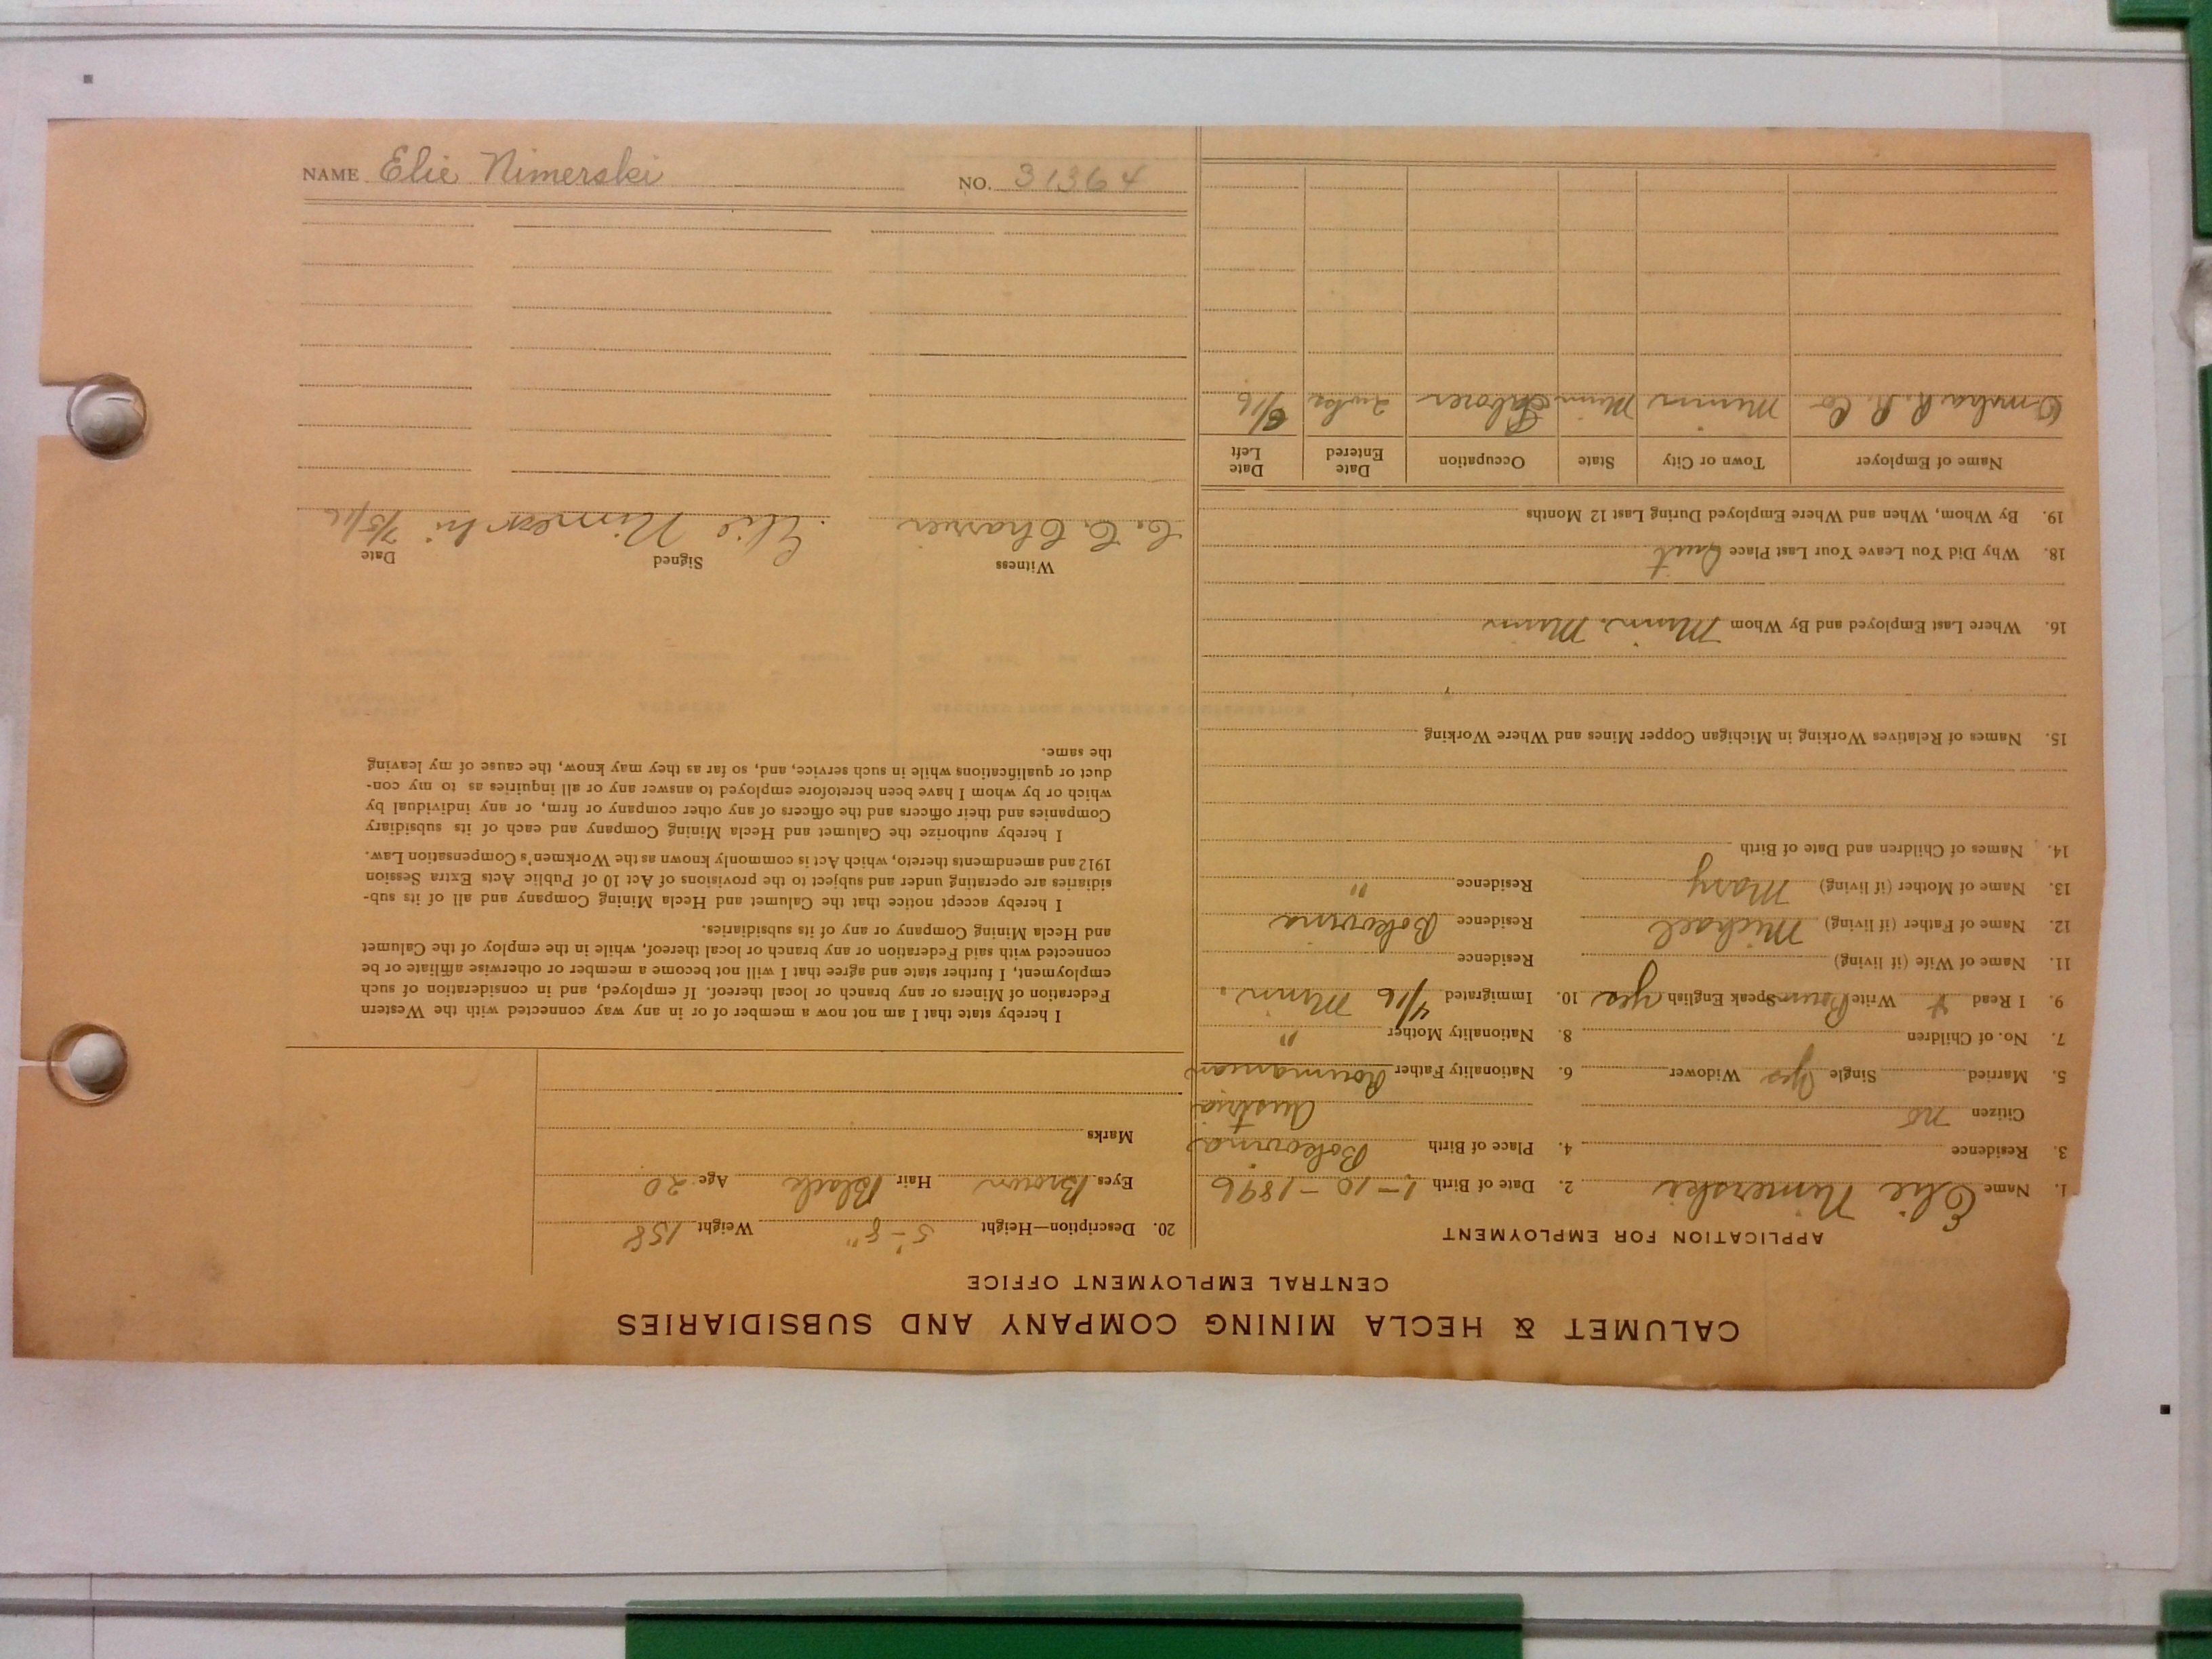 CALUMET & HECLA MINING COMPANY AND SUBSIDIARIES
CENTRAL EMPLOYMENT OFFICE
APPLICATION FOR EMPLOYMENT
1. Name Elie Nimerski 2. Date of Birth 1-10-1896
3. Residence 4. Place of Birth Bokovina
Citizen no Austria
5. Married Single Yes Widower 6. Nationality Father Roumanian
7. No. of Children 8. Nationality Mother "
9. I Read Write Roum Speak English yes 10. Immigrated 4/16 Minn.
11. Name of Wife (if living) Residence
12. Name of Father (if living) Michael Residence Bokovina
13. Name of Mother (if living) Mary Residence "
14. Names of Children and Date of Birth
15. Names of Relatives Working in Michigan Copper Mines and Where Working
16. Where Last Employed and By Whom Minn. Minn
18. Why Did You Leave Your Last Place Quit
19. By Whom, When and Where Employed During Last 12 Months
Name of Employer Town or City State Occupation Date Entered Date Left
Omaha R. R. Co Minn Minn Laborer 2 wks 6/16
20. Description—Height 5'-8" Weight 158
Eyes Brown Hair Black Age 20
Marks
I hereby state that I am not now a member of or in any way connected with the Western
Federation of Miners or any branch or local thereof. If employed, and in consideration of such
employment, I further state and agree that I will not become a member or otherwise affiliate or be
connected with said Federation or any branch or local thereof, while in the employ of the Calumet
and Hecla Mining Company or any of its subsidiaries.
I hereby accept notice that the Calumet and Hecla Mining Company and all of its sub-
sidiaries are operating under and subject to the provisions of Act 10 of Public Acts Extra Session
1912 and amendments thereto, which Act is commonly known as the Workmen's Compensation Law.
I hereby authorize the Calumet and Hecla Mining Company and each of its subsidiary
Companies and their officers and the officers of any other company or firm, or any individual by
which or by whom I have been heretofore employed to answer any or all inquiries as to my con-
duct or qualifications while in such service, and, so far as they may know, the cause of my leaving
the same.
Witness Signed Date
C. C. Charrier Elie Nimerski 7/5/16
NAME Elie Nimerski NO. 31364